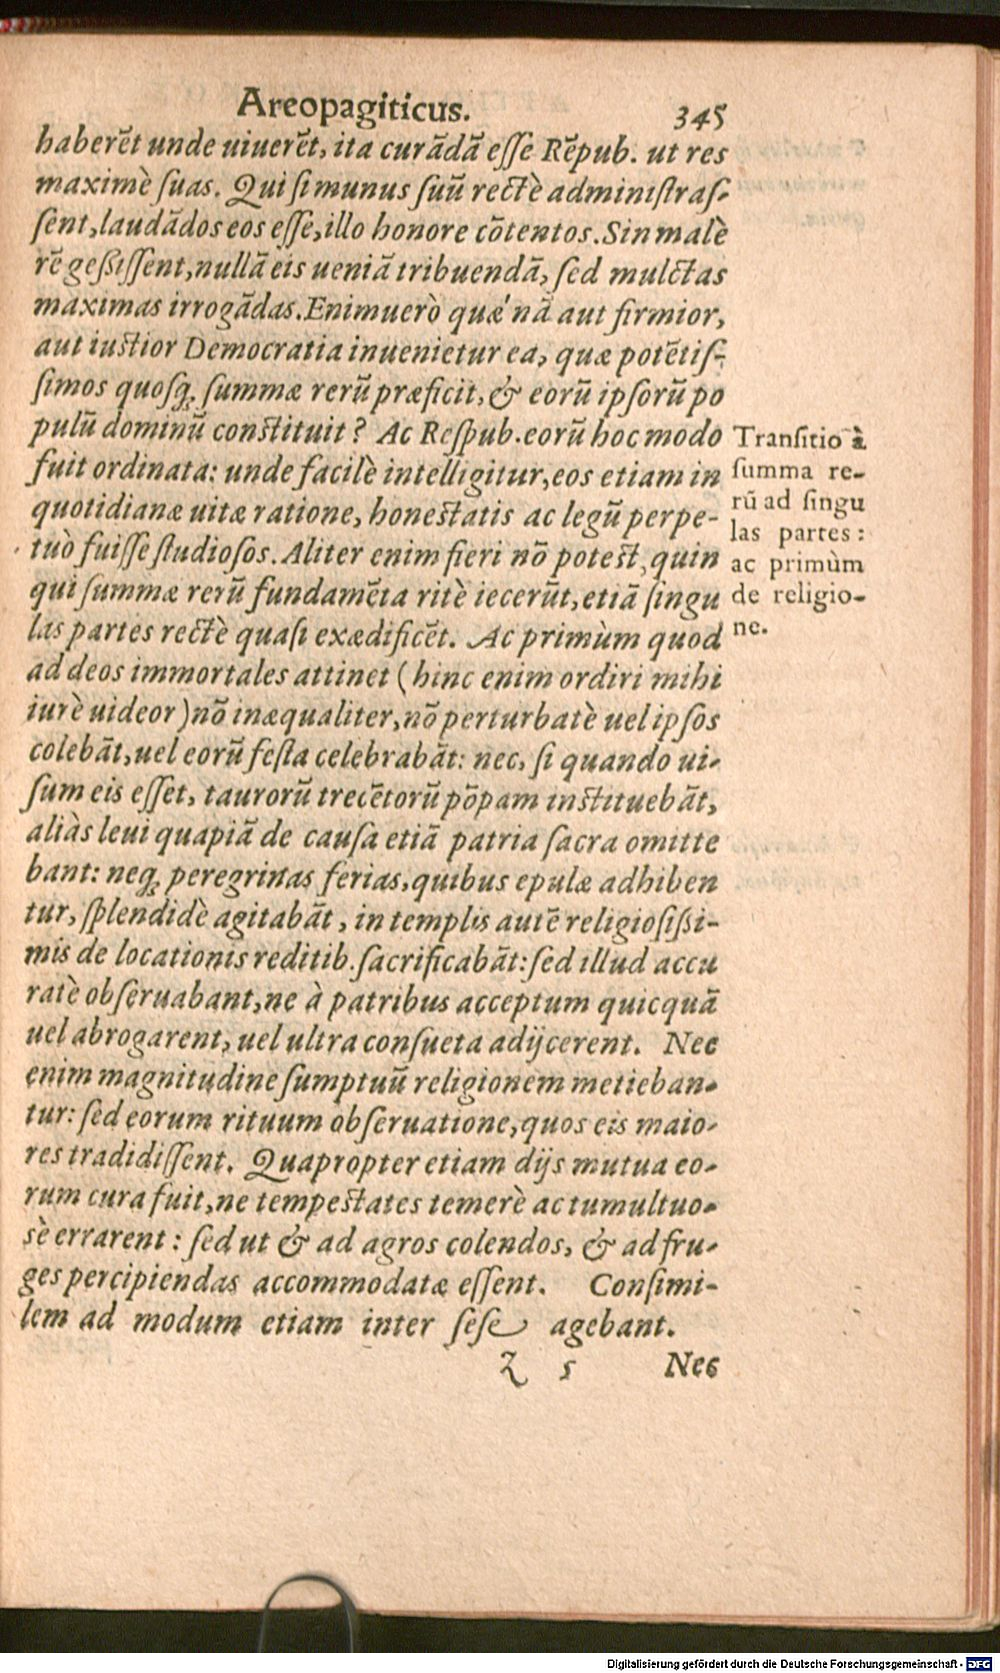 Areopagiticus. 345
haberēt unde uiuerēt, ita curādā eſſe Rēpub. ut res
maximè ſuas. Qui ſi munus ſuū rectè adminiſtraſ-
ſent, laudādos eos eſſe, illo honore cōtentos. Sin malè
rē geßiſſent, nullā eis ueniā tribuendā, ſed mulctas
maximas irrogādas. Enimuerò quæ´nā aut firmior,
aut iustior Democratia inuenietur ea, quæ potētiſ-
ſimos quoſq; ſummæ rerū præficit, & eorū ipſorū po
pulū dominū constituit? Ac Reſpub. eorū hoc modo
fuit ordinata: unde facilè intelligitur, eos etiam in
quotidianæ uitæ ratione, honestatis ac legū perpe-
tuò fuiſſe ſtudioſos. Aliter enim fieri nō potest, quin
qui ſummæ rerū fundamēta ritè iecerūt, etiā ſingu
las partes rectè quaſi exædificēt. Ac primùm quod
ad deos immortales attinet (hinc enim ordiri mihi
iurè uideor) nō inæqualiter, nō perturbatè uel ipſos
colebāt, uel eorū feſta celebrabāt: nec, ſi quando ui-
ſum eis eſſet, taurorū trecētorū pōpam instituebāt,
aliàs leui quapiā de cauſa etiā patria ſacra omitte
bant: neq; peregrinas ferias, quibus epulæ adhiben
tur, ſplendidè agitabāt, in templis autē religioſißi-
mis de locationis reditib. ſacrificabāt: ſed illud accu
ratè obſeruabant, ne à patribus acceptum quicquā
uel abrogarent, uel ultra conſueta adijcerent. Nec
enim magnitudine ſumptuū religionem metieban-
tur: ſed eorum rituum obſeruatione, quos eis maio-
res tradidiſſent. Quapropter etiam dijs mutua eo-
rum cura fuit, ne tempestates temerè ac tumultuo-
sè errarent: ſed ut & ad agros colendos, & ad fru-
ges percipiendas accommodatæ eſſent. Conſimi-
lem ad modum etiam inter ſeſe agebant.
Z 5 Nec
Tranſitio à
ſumma re-
rū ad ſingu
las partes:
ac primùm
de religio-
ne.
Digitalisierung gefördert durch die Deutsche Forschungsgemeinschaft - DFG